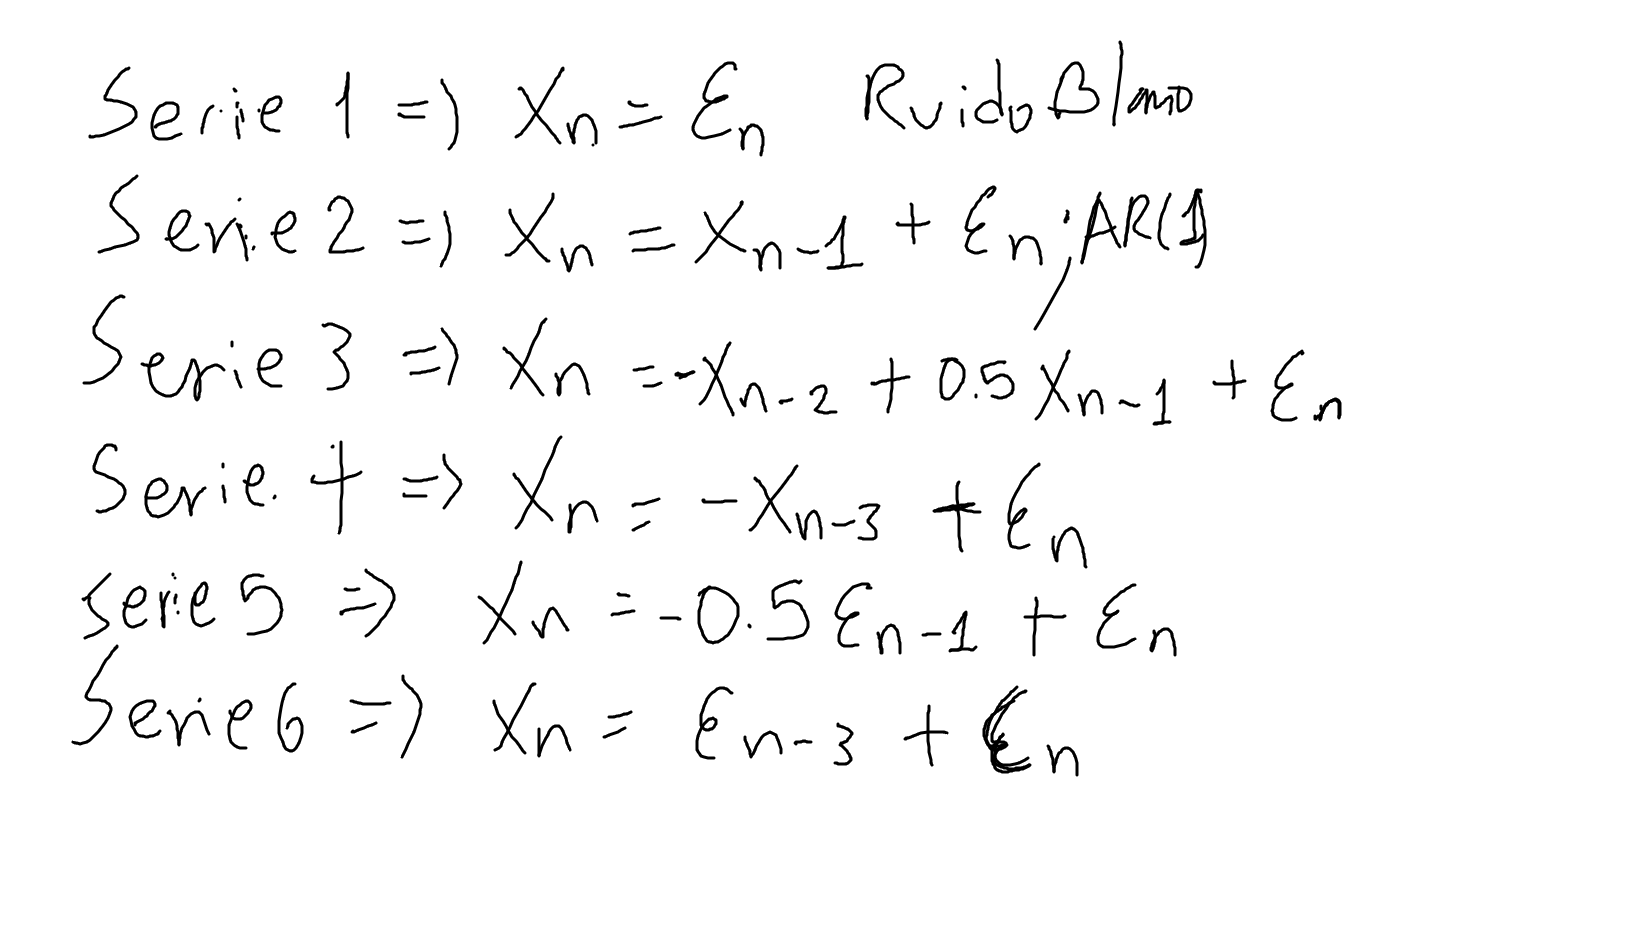 Serie 1 => Xn = Ɛn Ruido Blanco
Serie 2 => Xn = Xn-1 + Ɛn ; AR(1)
Serie 3 => Xn = -Xn-2 + 0.5 Xn-1 + Ɛn
Serie 4 => Xn = -Xn-3 + Ɛn
Serie 5 => Xn = -0.5 Ɛn-1 + Ɛn
Serie 6 => Xn = Ɛn-3 + Ɛn